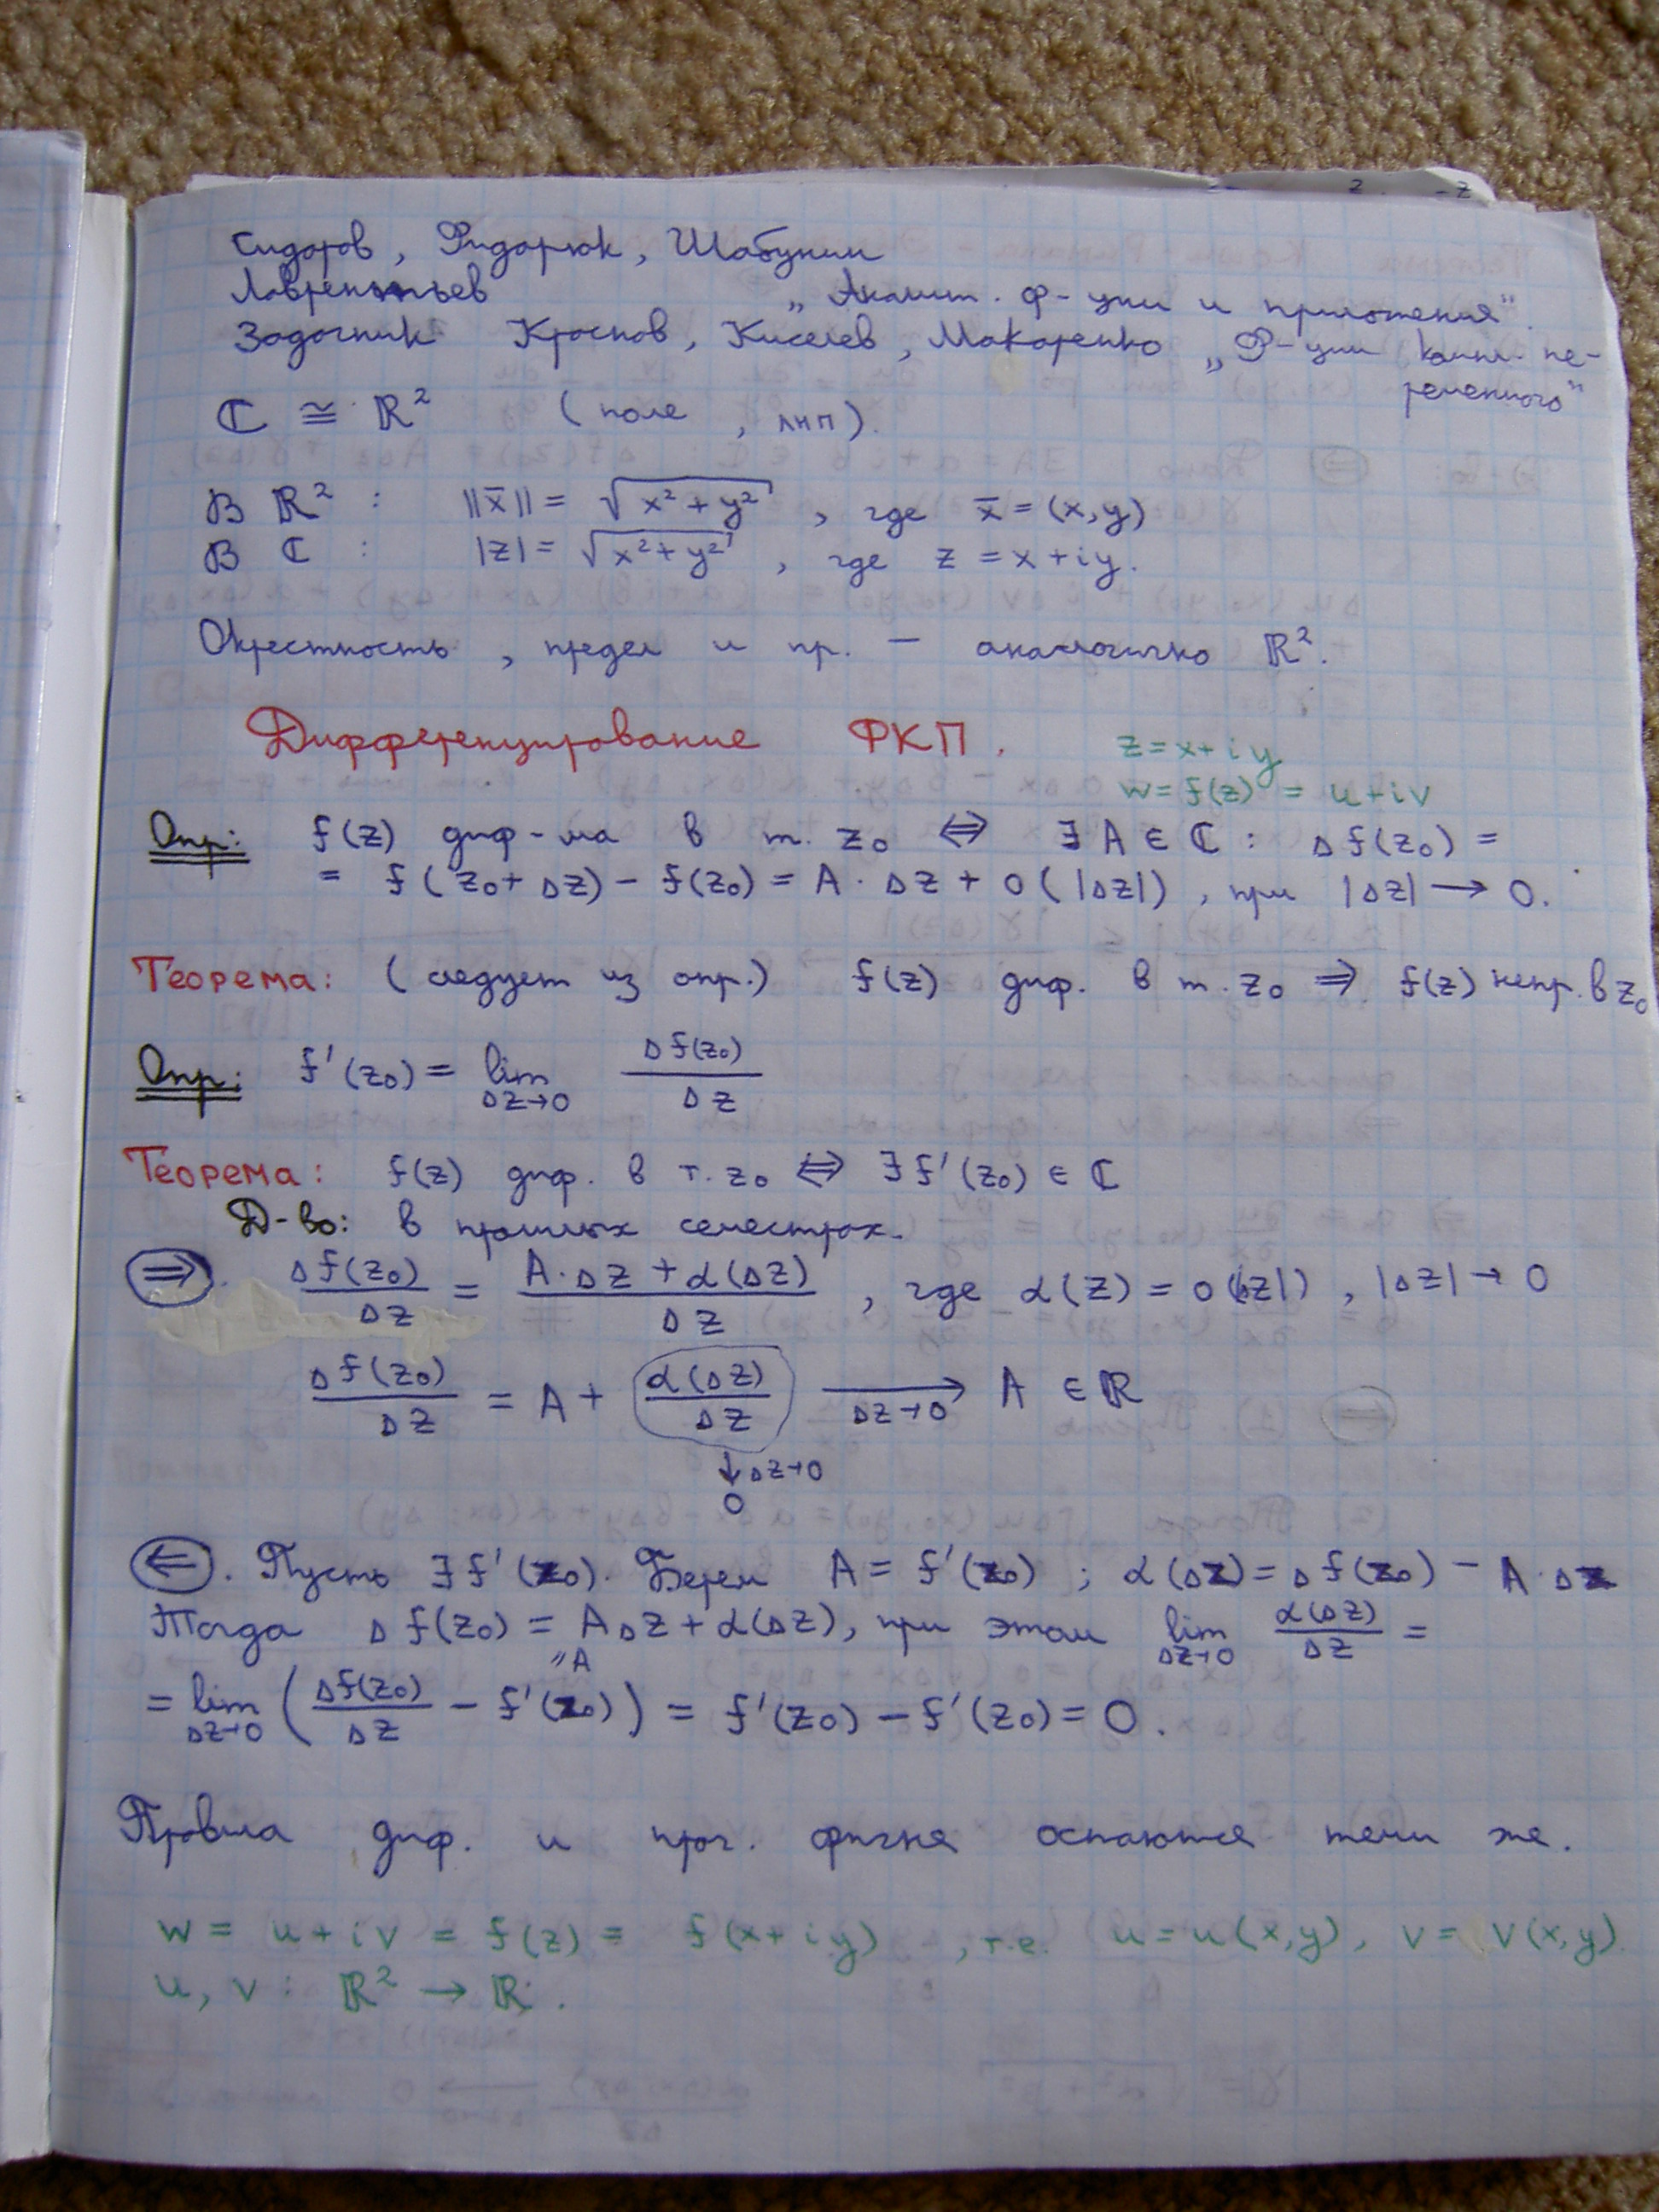 Сидоров, Фидорюк, Шабунин
Лаврентьев „Аналит. ф-ции и приложения“.
Задачник Краснов, Киселев, Макаренко „Ф-ции компл. пе-
ременного“
ℂ ≅ ℝ² (поле, ЛНП).
В ℝ² : ||x̄|| = √(x² + y²), где x̄ = (x,y)
В ℂ : |z| = √(x² + y²), где z = x + iy.
Окрестность, предел и пр. — аналогично ℝ².
Дифференцирование ФКП.
z = x + iy
w = f(z) = u + iv
Опр: f(z) диф-ма в т. z₀ ⇔ ∃ A ∈ ℂ : Δf(z₀) =
= f(z₀ + Δz) − f(z₀) = A · Δz + o(|Δz|), при |Δz| → 0.
Теорема: (следует из опр.) f(z) диф. в т. z₀ ⇒ f(z) непр. в z₀
Опр: f'(z₀) = lim_{Δz→0} Δf(z₀)/Δz
Теорема: f(z) диф. в т. z₀ ⇔ ∃ f'(z₀) ∈ ℂ
Д-во: в прошлых семестрах.
⇒. Δf(z₀)/Δz = (A·Δz + α(Δz))/Δz, где α(z) = o(|Δz|), |Δz| → 0
Δf(z₀)/Δz = A + α(Δz)/Δz →_{Δz→0} A ∈ ℝ
↓ Δz→0
0
⇐. Пусть ∃ f'(z₀). Берем A = f'(z₀) ; α(Δz) = Δf(z₀) − A · Δz
Тогда Δf(z₀) = AΔz + α(Δz), при этом lim_{Δz→0} α(Δz)/Δz =
"A
= lim_{Δz→0} (Δf(z₀)/Δz − f'(z₀)) = f'(z₀) − f'(z₀) = 0.
Правила диф. и проч. фигня остаются теми же.
w = u + iv = f(z) = f(x + iy), т.е. u = u(x,y), v = v(x,y).
u, v : ℝ² → ℝ.